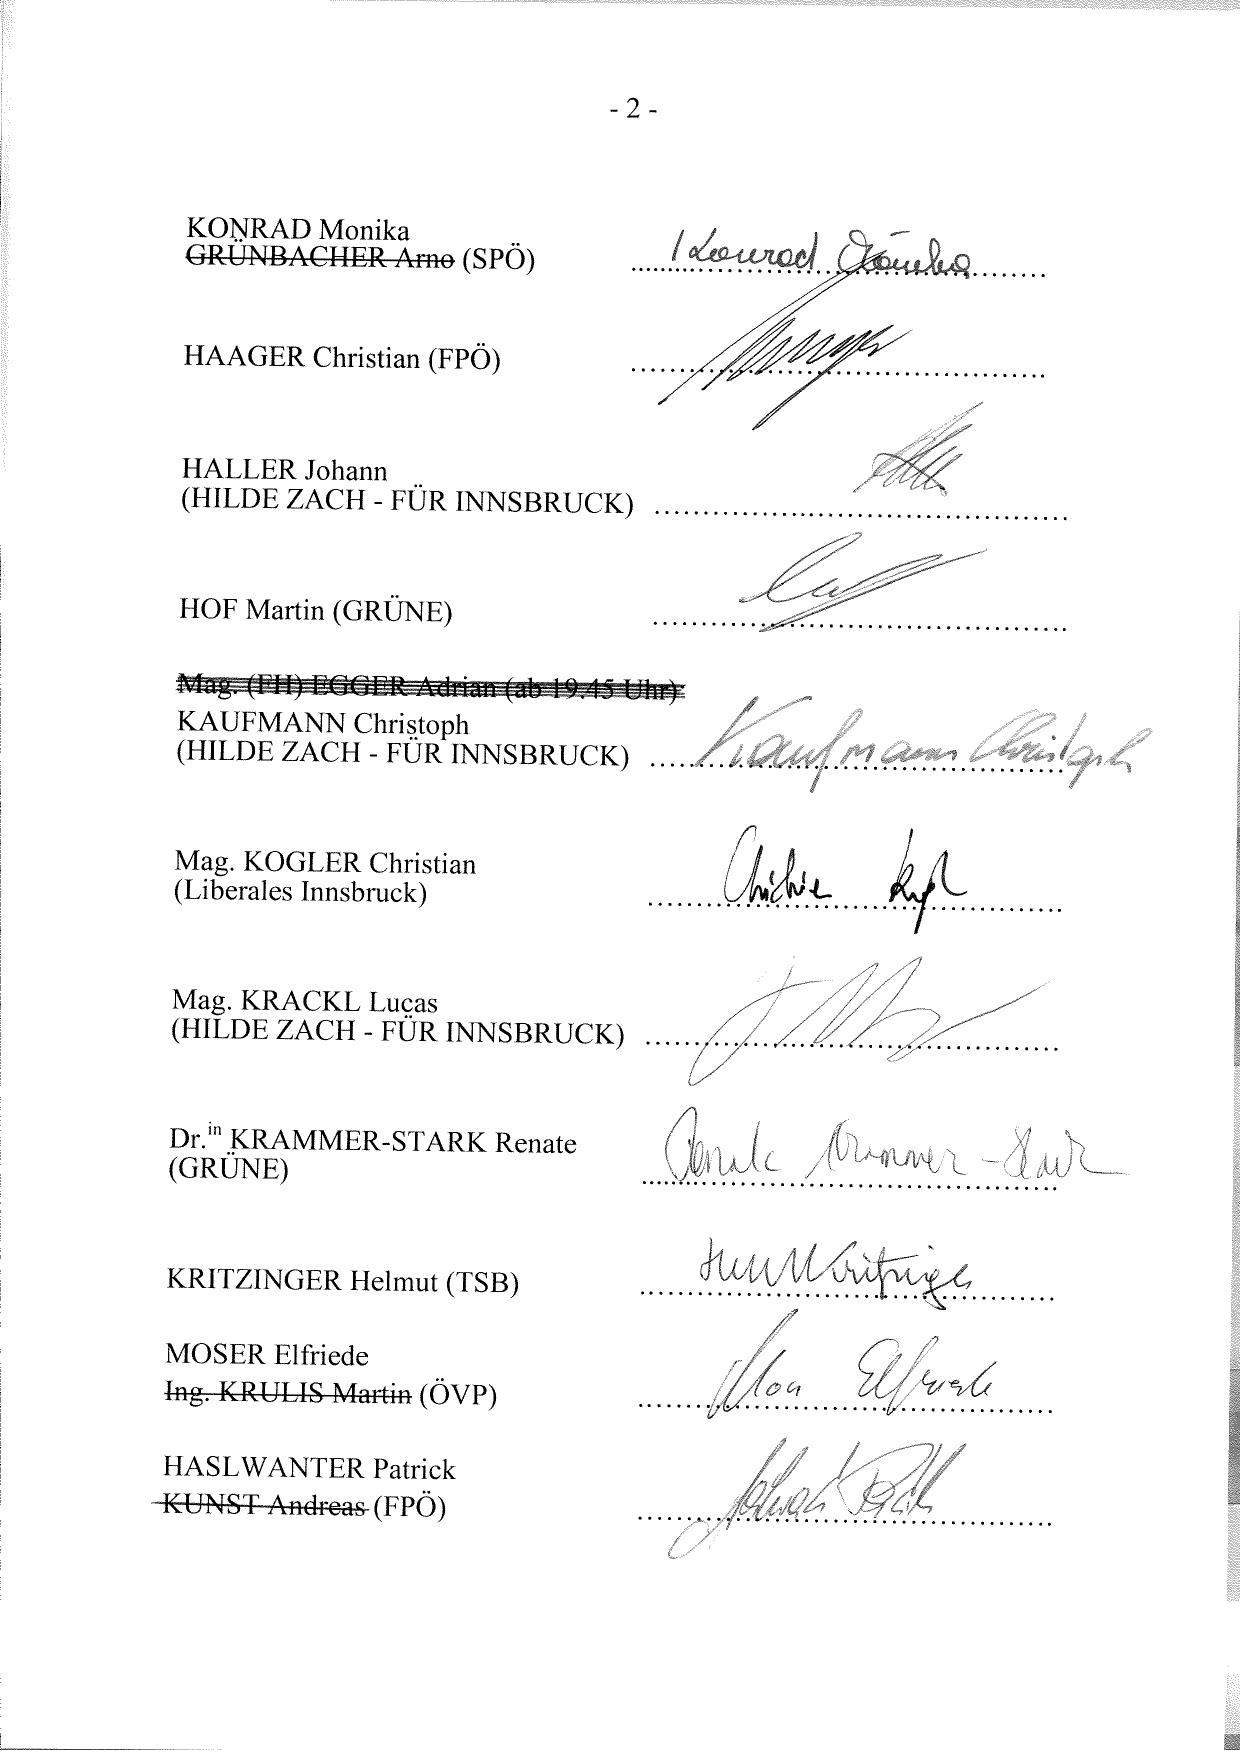 - 2 -
KONRAD Monika
GRÜNBACHER Arno (SPÖ)
Konrad Monika
HAAGER Christian (FPÖ)
HALLER Johann
(HILDE ZACH - FÜR INNSBRUCK)
HOF Martin (GRÜNE)
Mag. (FH) EGGER Adrian (ab 19.45 Uhr)
KAUFMANN Christoph
(HILDE ZACH - FÜR INNSBRUCK)
Kaufmann Christoph
Mag. KOGLER Christian
(Liberales Innsbruck)
Mag. KRACKL Lucas
(HILDE ZACH - FÜR INNSBRUCK)
Dr.in KRAMMER-STARK Renate
(GRÜNE)
Renate Krammer-Stark
KRITZINGER Helmut (TSB)
MOSER Elfriede
Ing. KRULIS Martin (ÖVP)
HASLWANTER Patrick
KUNST Andreas (FPÖ)